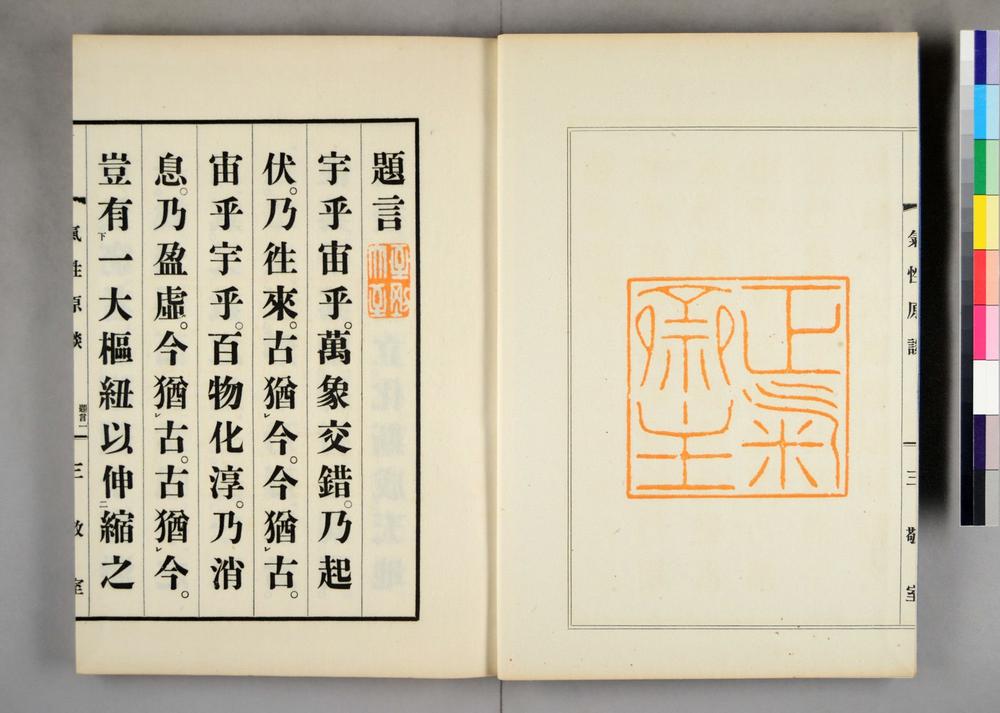 氣性原談
三敬室
正氣
主
題言
宇乎宙乎。萬象交錯。乃起
伏。乃徃來。古猶レ今。今猶レ古。
宙乎宇乎。百物化淳。乃消
息。乃盈虛。今猶レ古。古猶レ今。
豈有下一大樞紐以伸二縮之
氣性原談
題言一
三敬室